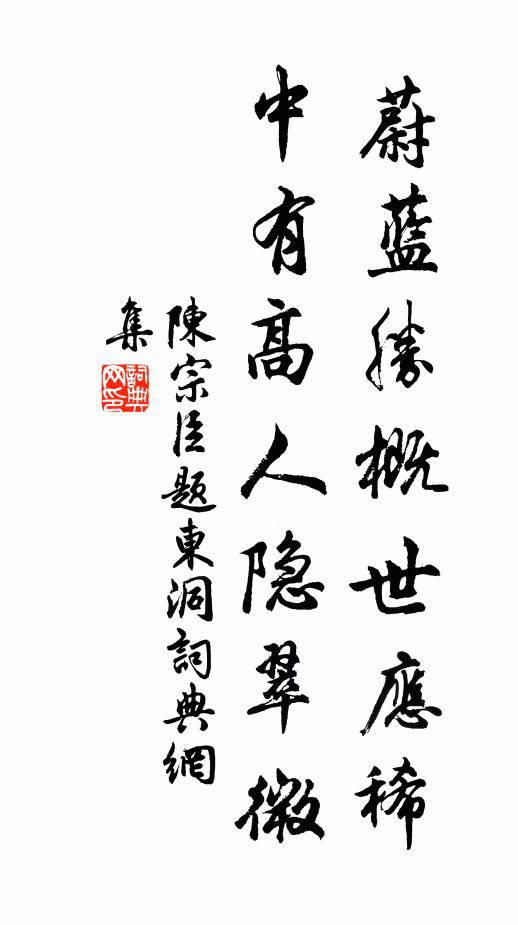 蔚藍勝概世應稀
中有高人隐翠微
陳宗臣題東洞詞典網
集
詞典
网印